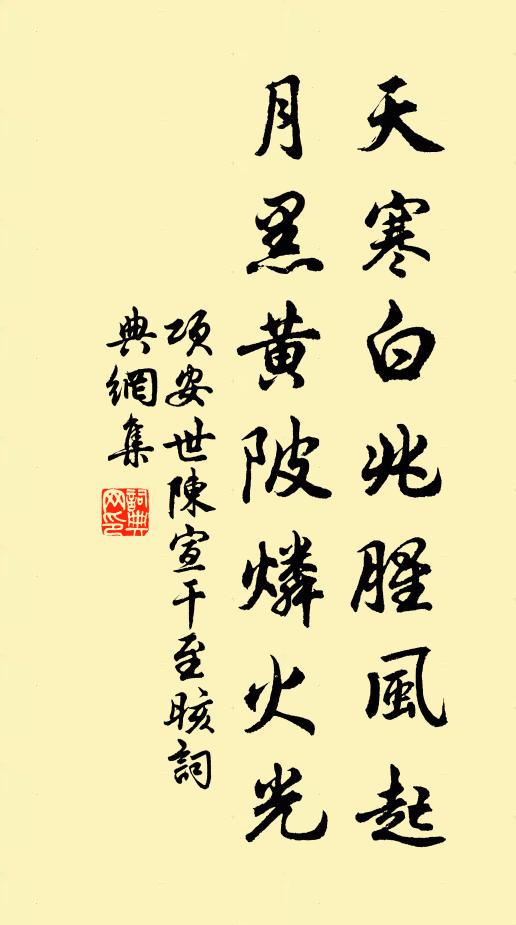 天寒白兆腥風起
月黑黃陂燐火光
項安世陳宣干至眩詞
典網集
詞典网印